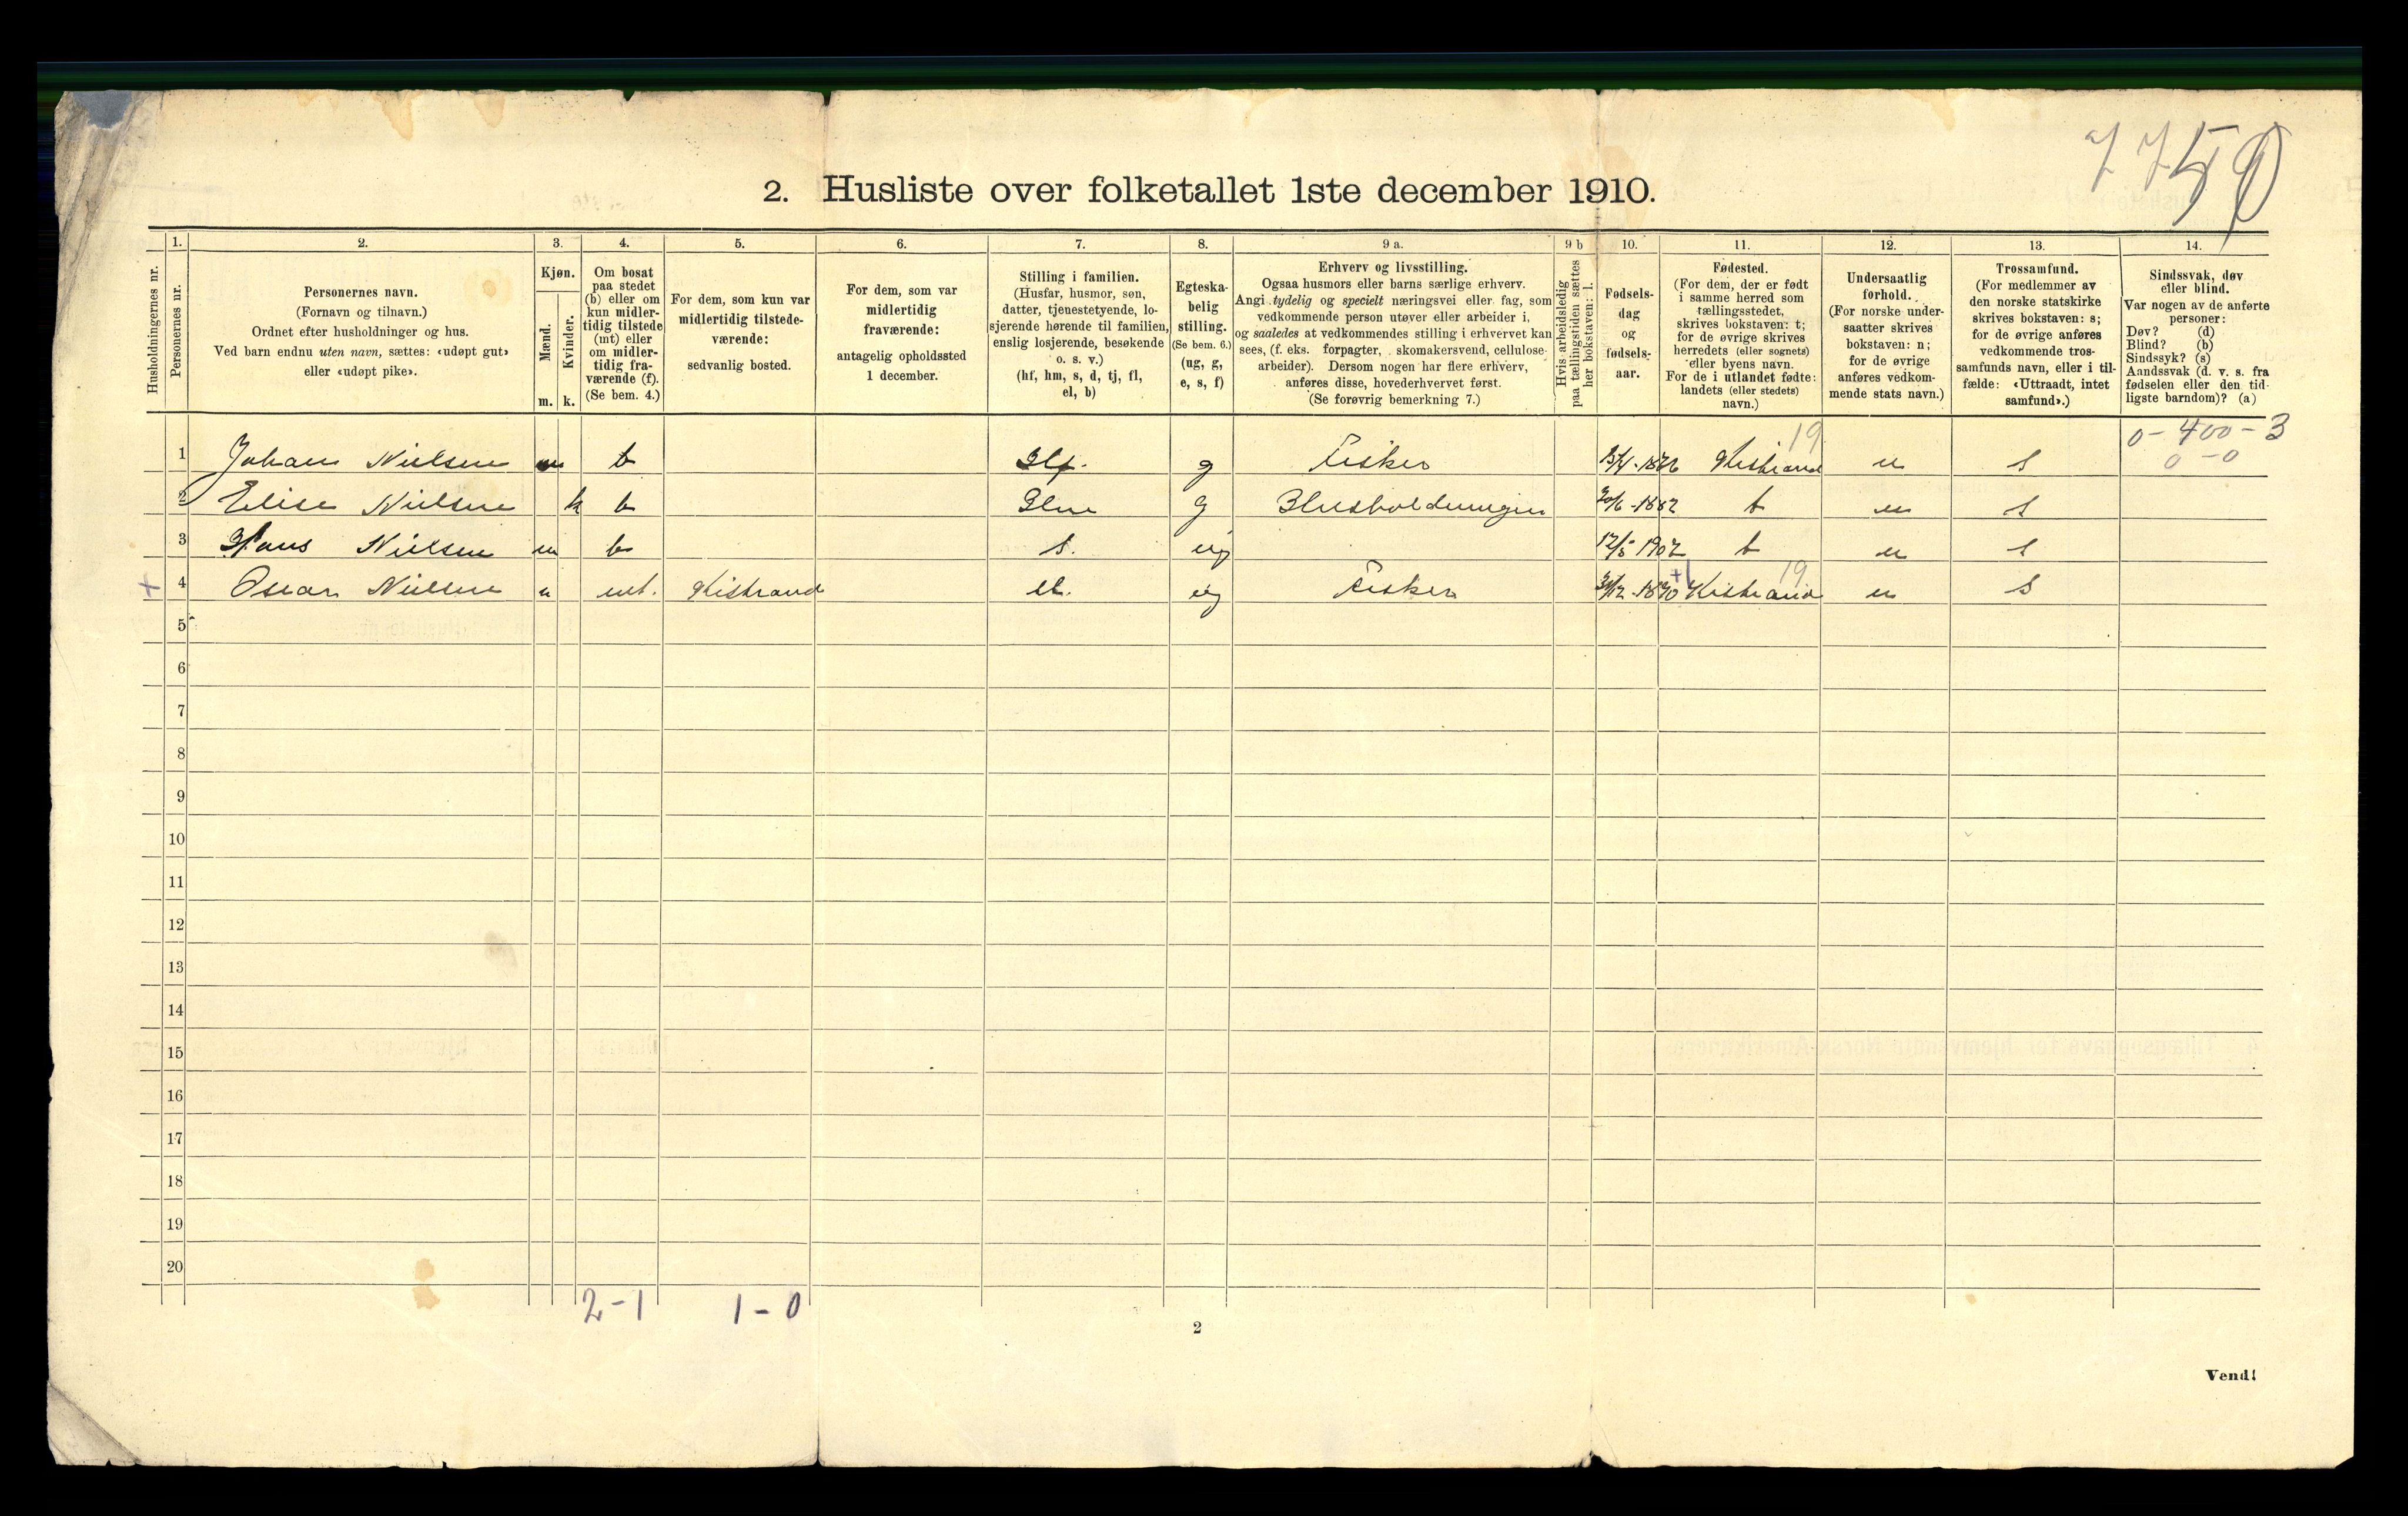 7750
2. Husliste over folketallet 1ste december 1910.
1. 2. 3. 4. 5. 6. 7. 8. 9 a. 9 b 10. 11. 12. 13. 14.
Husholdningernes nr.
Personernes nr.
Personernes navn.
(Fornavn og tilnavn.)
Ordnet efter husholdninger og hus.
Ved barn endnu uten navn, sættes: «udøpt gut»
eller «udøpt pike».
Kjøn.
Mænd.
Kvinder.
m. k.
Om bosat
paa stedet
(b) eller om
kun midler-
tidig tilstede
(mt) eller
om midler-
tidig fra-
værende (f).
(Se bem. 4.)
For dem, som kun var
midlertidig tilstede-
værende:
sedvanlig bosted.
For dem, som var
midlertidig
fraværende:
antagelig opholdssted
1 december.
Stilling i familien.
(Husfar, husmor, søn,
datter, tjenestetyende, lo-
sjerende hørende til familien,
enslig losjerende, besøkende
o. s. v.)
(hf, hm, s, d, tj, fl,
el, b)
Egteska-
belig
stilling.
(Se bem. 6.)
(ug, g,
e, s, f)
Erhverv og livsstilling.
Ogsaa husmors eller barns særlige erhverv.
Angi tydelig og specielt næringsvei eller fag, som
vedkommende person utøver eller arbeider i,
og saaledes at vedkommendes stilling i erhvervet kan
sees, (f. eks. forpagter, skomakersvend, cellulose-
arbeider). Dersom nogen har flere erhverv,
anføres disse, hovederhvervet først.
(Se forøvrig bemerkning 7.)
Hvis arbeidsledig
paa tællingstiden sættes
her bokstaven: l.
Fødsels-
dag
og
fødsels-
aar.
Fødested.
(For dem, der er født
i samme herred som
tællingsstedet,
skrives bokstaven: t;
for de øvrige skrives
herredets (eller sognets)
eller byens navn.
For de i utlandet fødte:
landets (eller stedets)
navn.)
Undersaatlig
forhold.
(For norske under-
saatter skrives
bokstaven: n;
for de øvrige
anføres vedkom-
mende stats navn.)
Trossamfund.
(For medlemmer av
den norske statskirke
skrives bokstaven: s;
for de øvrige anføres
vedkommende tros-
samfunds navn, eller i til-
fælde: «Uttraadt, intet
samfund».)
Sindssvak, døv
eller blind.
Var nogen av de anførte
personer:
Døv? (d)
Blind? (b)
Sindssyk? (s)
Aandssvak (d. v. s. fra
fødselen eller den tid-
ligste barndom)? (a)
19 0-400-3
1 Johan Nielsen m b Hf. g Fisker Kistrand n s 0-0
2 Elise Nielsen k b Hm g Husholdningen 30/6-1882 t n s
3 Hans Nielsen m b s. ug 12/5-1907 t n s
+1 19
+ 4 Oscar Nielsen m mt. Kistrand el. ug Fisker 1890 Kistrand n s
5
6
7
8
9
10
11
12
13
14
15
16
17
18
19
20
2-1 1-0
2
Vend!